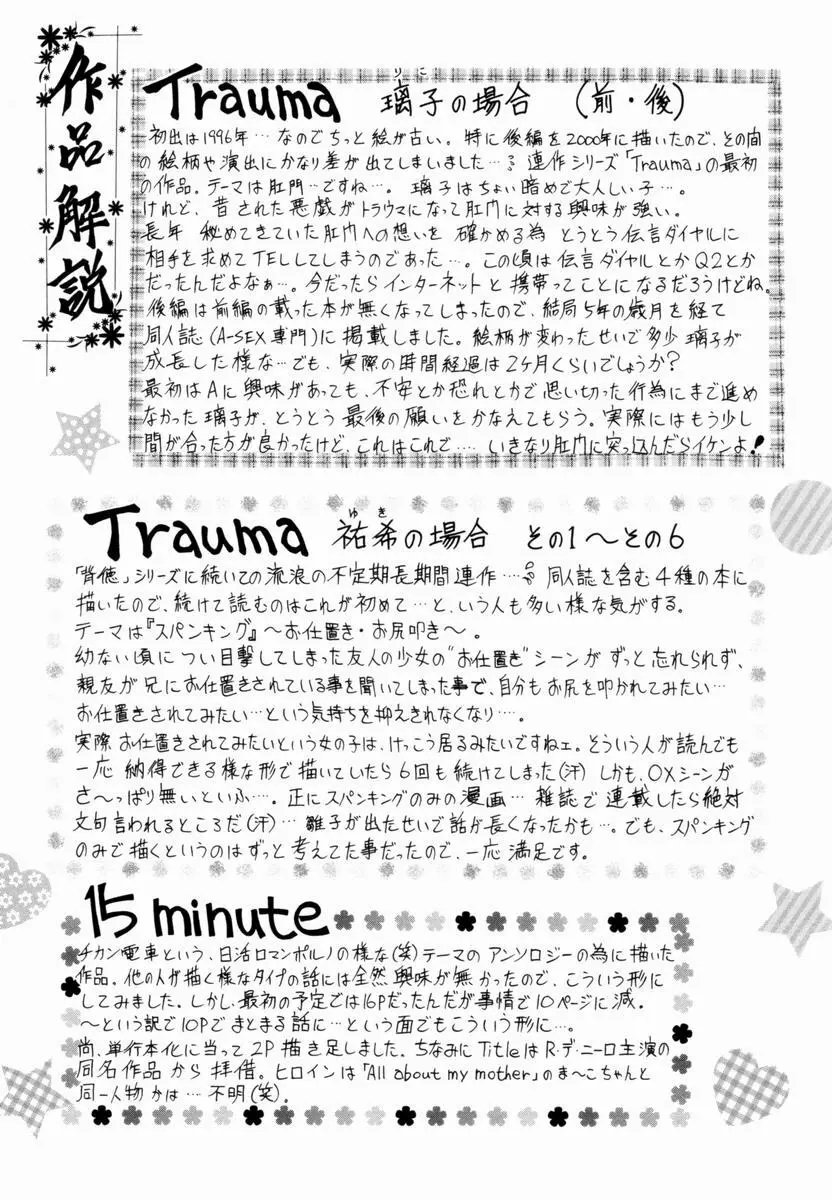 作品解説
Trauma 璃子の場合 (前・後)
りこ
初出は1996年…なのでちっと絵が古い。特に後編を2000年に描いたので、その間
の絵柄や演出にかなり差が出てしまいました…。連作シリーズ「Trauma」の最初
の作品。テーマは肛門…ですね…。璃子はちょい暗めで大人しい子…。
けれど、昔された悪戯がトラウマになって肛門に対する興味が強い。
長年 秘めてきていた肛門への想いを 確かめる為 とうとう伝言ダイヤルに
相手を求めてTELしてしまうのであった…。この頃は伝言ダイヤルとかQ2とか
だったんだよなぁ…。今だったらインターネットと携帯ってことになるだろうけどね。
後編は前編の載った本が無くなってしまったので、結局5年の歳月を経て
同人誌(A-SEX専門)に掲載しました。絵柄が変わったせいで多少 璃子が
成長した様な…でも、実際の時間経過は2ヶ月くらいでしょうか?
最初はAに興味があっても、不安とか恐れとかで思い切った行為にまで進め
なかった璃子が、とうとう最後の願いをかなえてもらう。実際にはもう少し
間が合った方が良かったけど、これはこれで…. いきなり肛門に突っ込んだらイケンよ!
Trauma 祐希の場合 その1~その6
ゆき
「背徳」シリーズに続いての流浪の不定期長期間連作…。同人誌を含む4種の本に
描いたので、続けて読むのはこれが初めて…と、いう人も多い様な気がする。
テーマは『スパンキング』~お仕置き・お尻叩き~。
幼ない頃に つい目撃してしまった友人の少女の"お仕置き"シーンが ずっと忘れられず、
親友が兄にお仕置きされている事を聞いてしまった事で、自分もお尻を叩かれてみたい…
お仕置きされてみたい…という気持ちを抑えきれなくなり…。
実際お仕置きされてみたいという女の子は、けっこう居るみたいですねェ。そういう人が読んでも
一応 納得できる様な形で描いていたら6回も続けてしまった(汗) しかも、OXシーンが
さ~っぱり無いといふ…。正にスパンキングのみの漫画…雑誌で連載したら絶対
文句言われるところだ(汗)… 雛子が出たせいで話が長くなったかも…。でも、スパンキング
のみで描くというのはずっと考えてた事だったので、一応満足です。
15 minute
チカン電車という、日活ロマンポルノの様な(笑)テーマのアンソロジーの為に描いた
作品。他の人が描く様なタイプの話には全然興味が無かったので、こういう形に
してみました。しかし、最初の予定では16Pだったんだが事情で10ページに減。
~という訳で10Pでまとまる話に…という面でもこういう形に…。
尚、単行本化に当って2P描き足しました。ちなみにTitleはR・デ・ニーロ主演の
同名作品から拝借。ヒロインは「All about my mother」のま~こちゃんと
同一人物かは…不明(笑)。